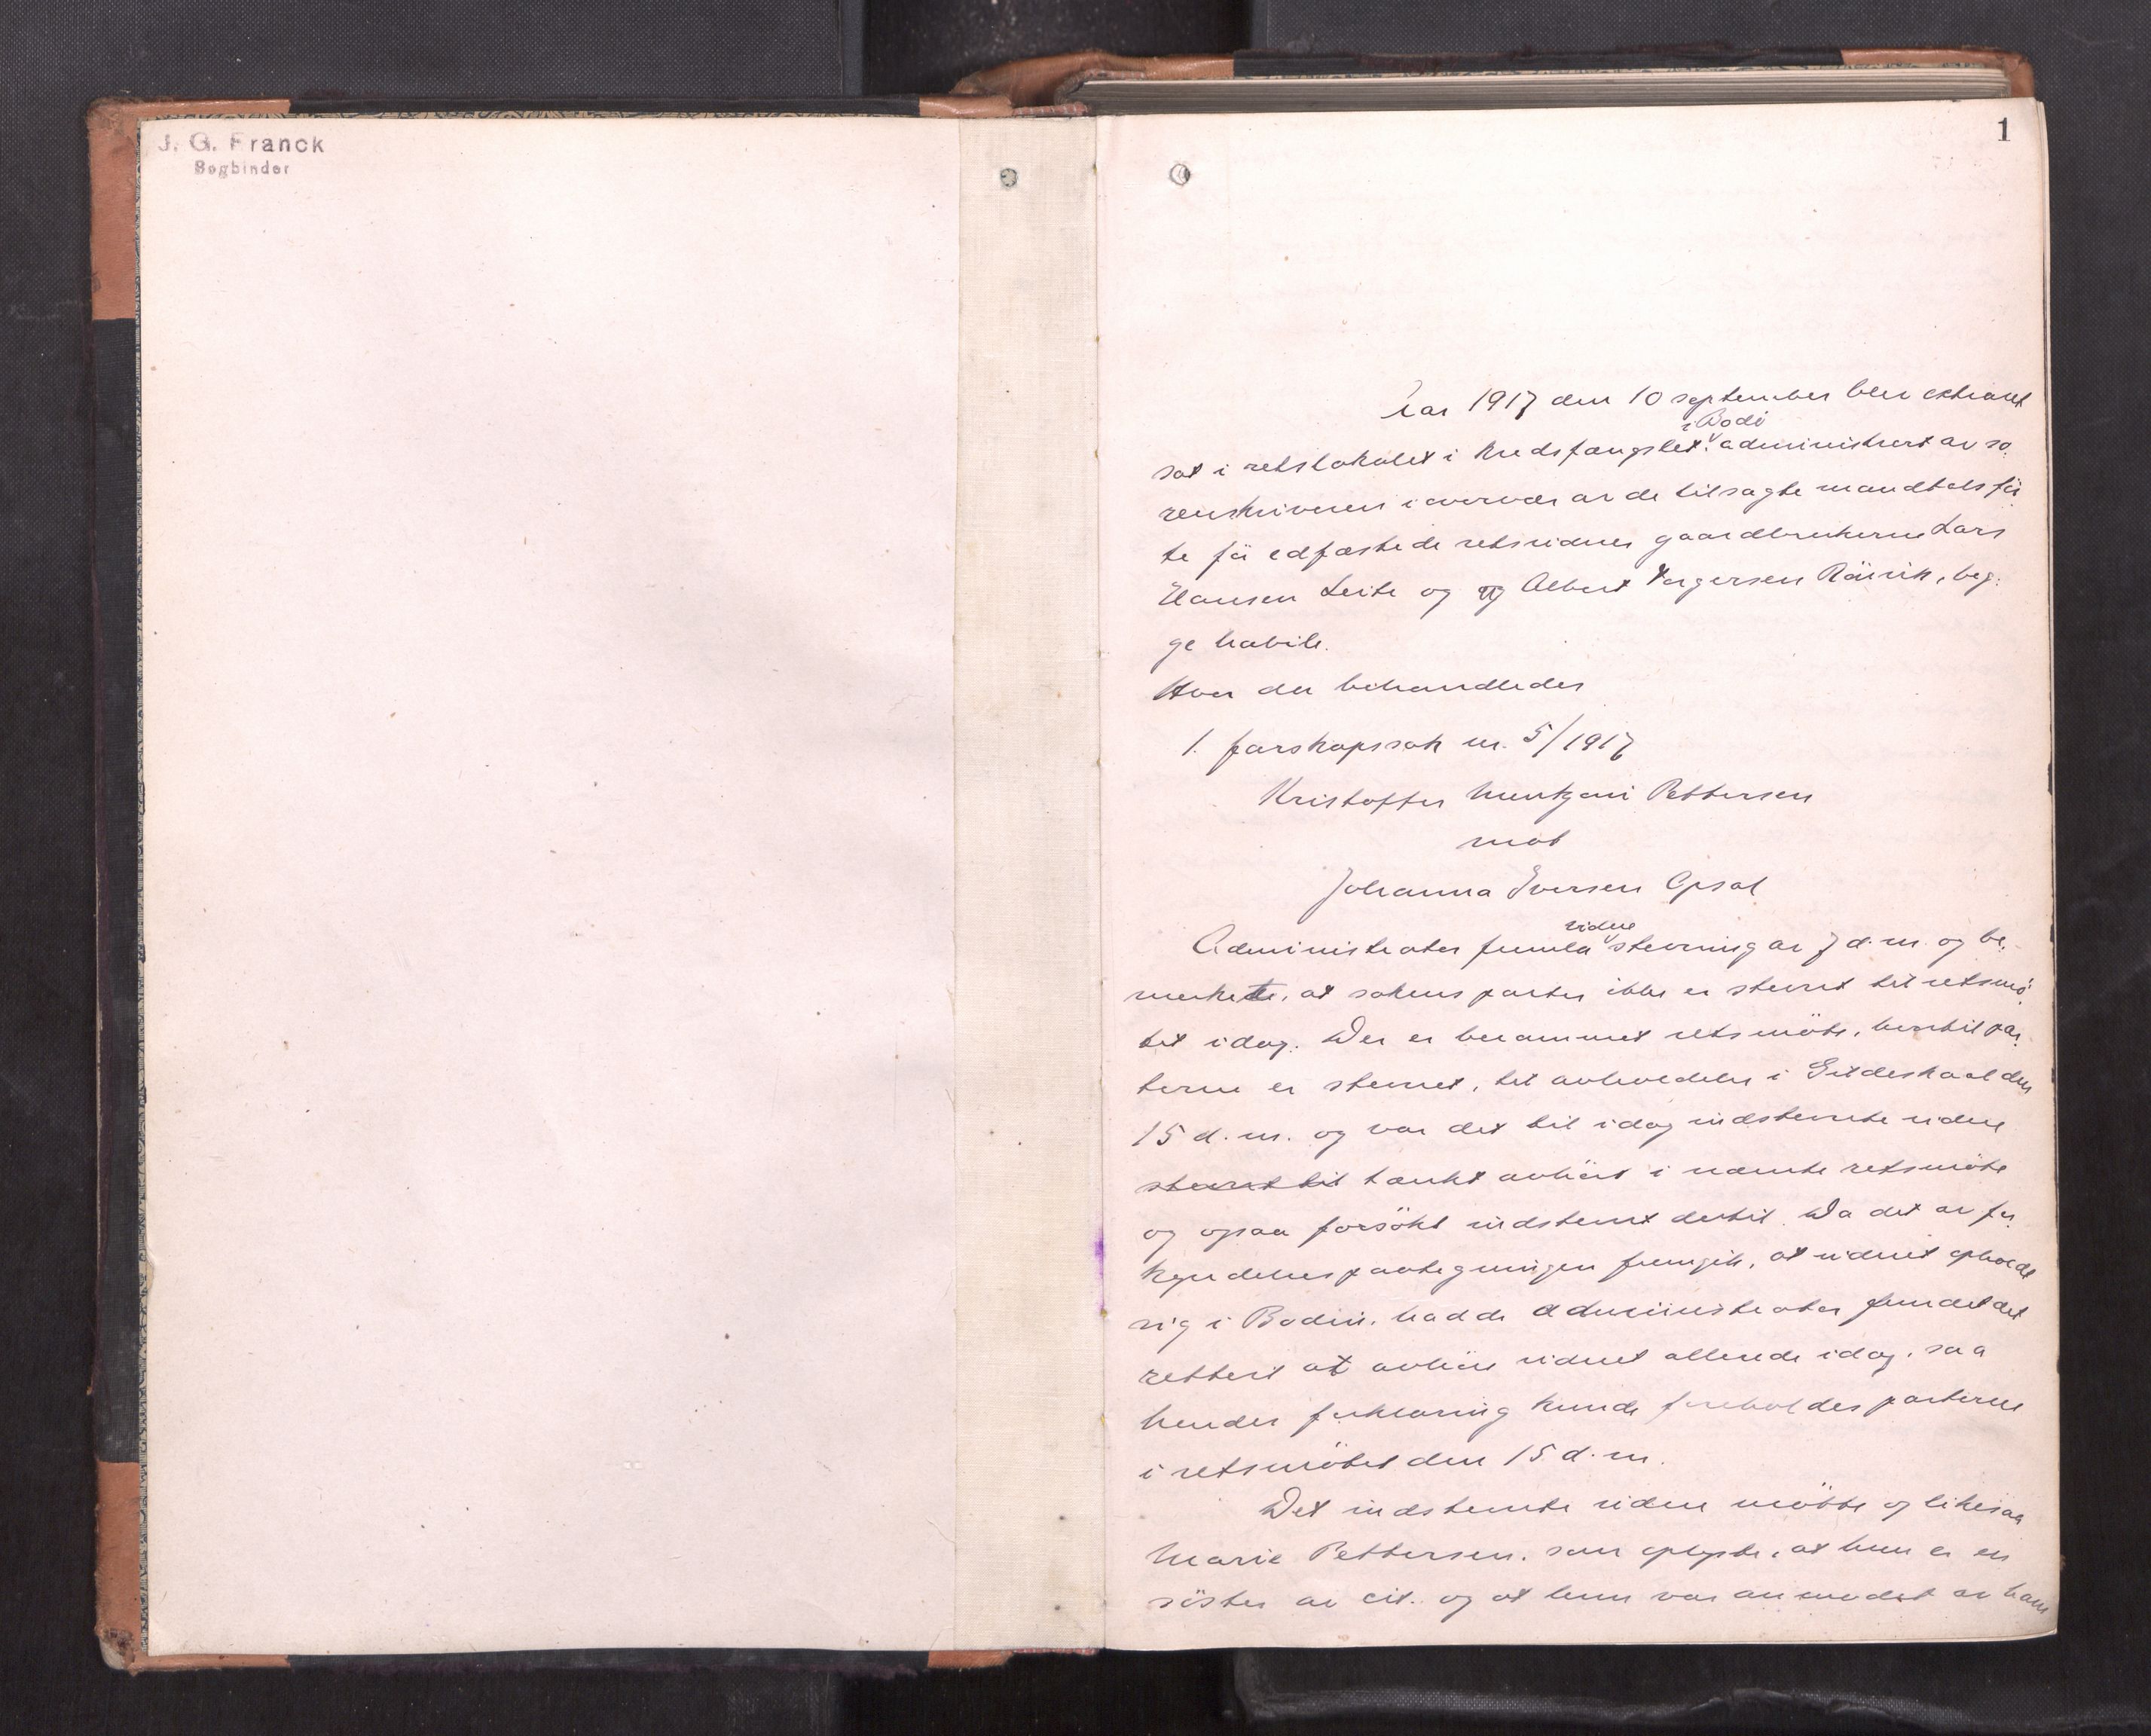 J. G. Franck
Bogbinder
1
Aar 1917 den 10 september blev ekstraret
i Bodö
sat i retslokalet i kredsfængslet administrert av so
renskriveren i overvær av de tilsagte mandtalsför
te för edfæstede retsvidner gaardbrukerne Lars
Hansen Leite og og Albert Torgersen Röivik, beg
ge habile.
Hvor der behandledes
1. farskapssak nr. 5/1917
Kristoffer Pettersen
mot
Johanna Iversen Opsal
vidne
Administrator fremla stevning av 7 d.m. og be
merkete, at sakens parter ikke er stevnet til retsmö
tet idag. Der er berammet retsmöte, hvortil par
terne er stevnet, til avholdelse i Gildeskaal den
15 d.m. og var det til idag indstevnte vidne
stevnet til tænkt avhört i nævnte retsmöte
og ogsaa forsökt indstevnt dertil. Da det av for
kyndelsespaategningen fremgik, at vidnet opholdt
sig i Bodin, hadde administrator fundet det
rettest at avhöre vidnet allerede idag, saa
hendes forklaring kunde foreholdes parterne
i retsmötet den 15 d.m.
Det indstevnte vidne mötte og likesaa
Marie Pettersen, som oplyste, at hun er en
söster av cit. og at hun var anmodet av ham